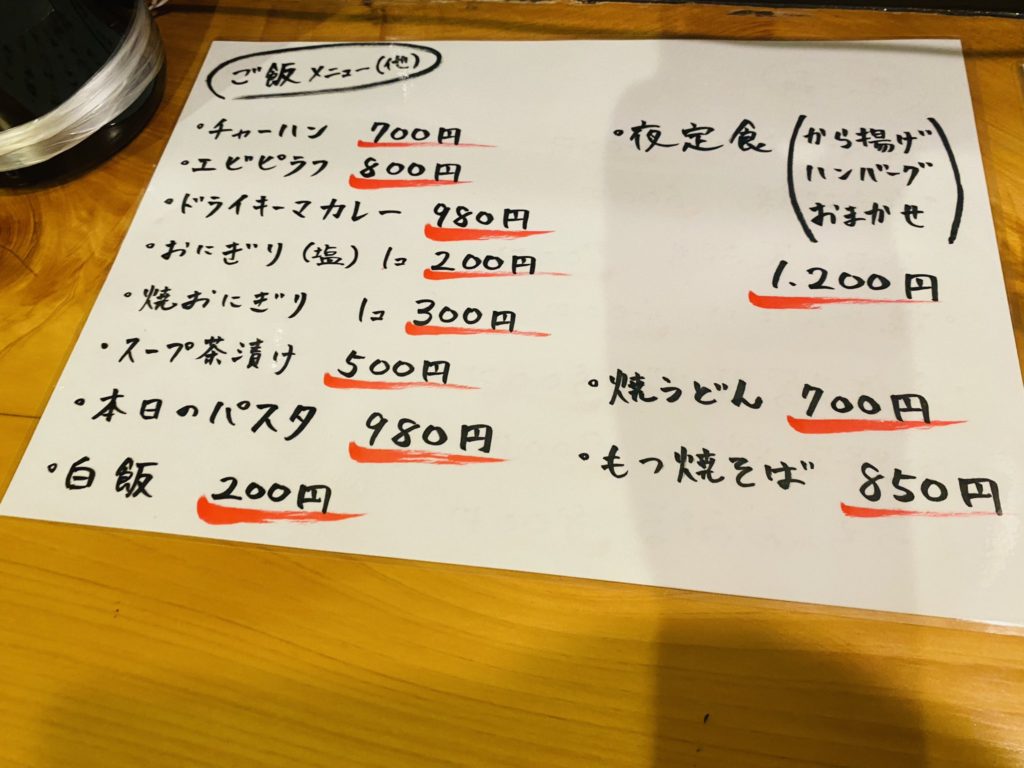 ご飯メニュー(他)
・チャーハン 700円
・エビピラフ 800円
・ドライキーマカレー 980円
・おにぎり(塩) 1コ 200円
・焼おにぎり 1コ 300円
・スープ茶漬け 500円
・本日のパスタ 980円
・白飯 200円
・夜定食 (から揚げ
ハンバーグ
おまかせ)
1.200円
・焼うどん 700円
・もつ焼そば 850円